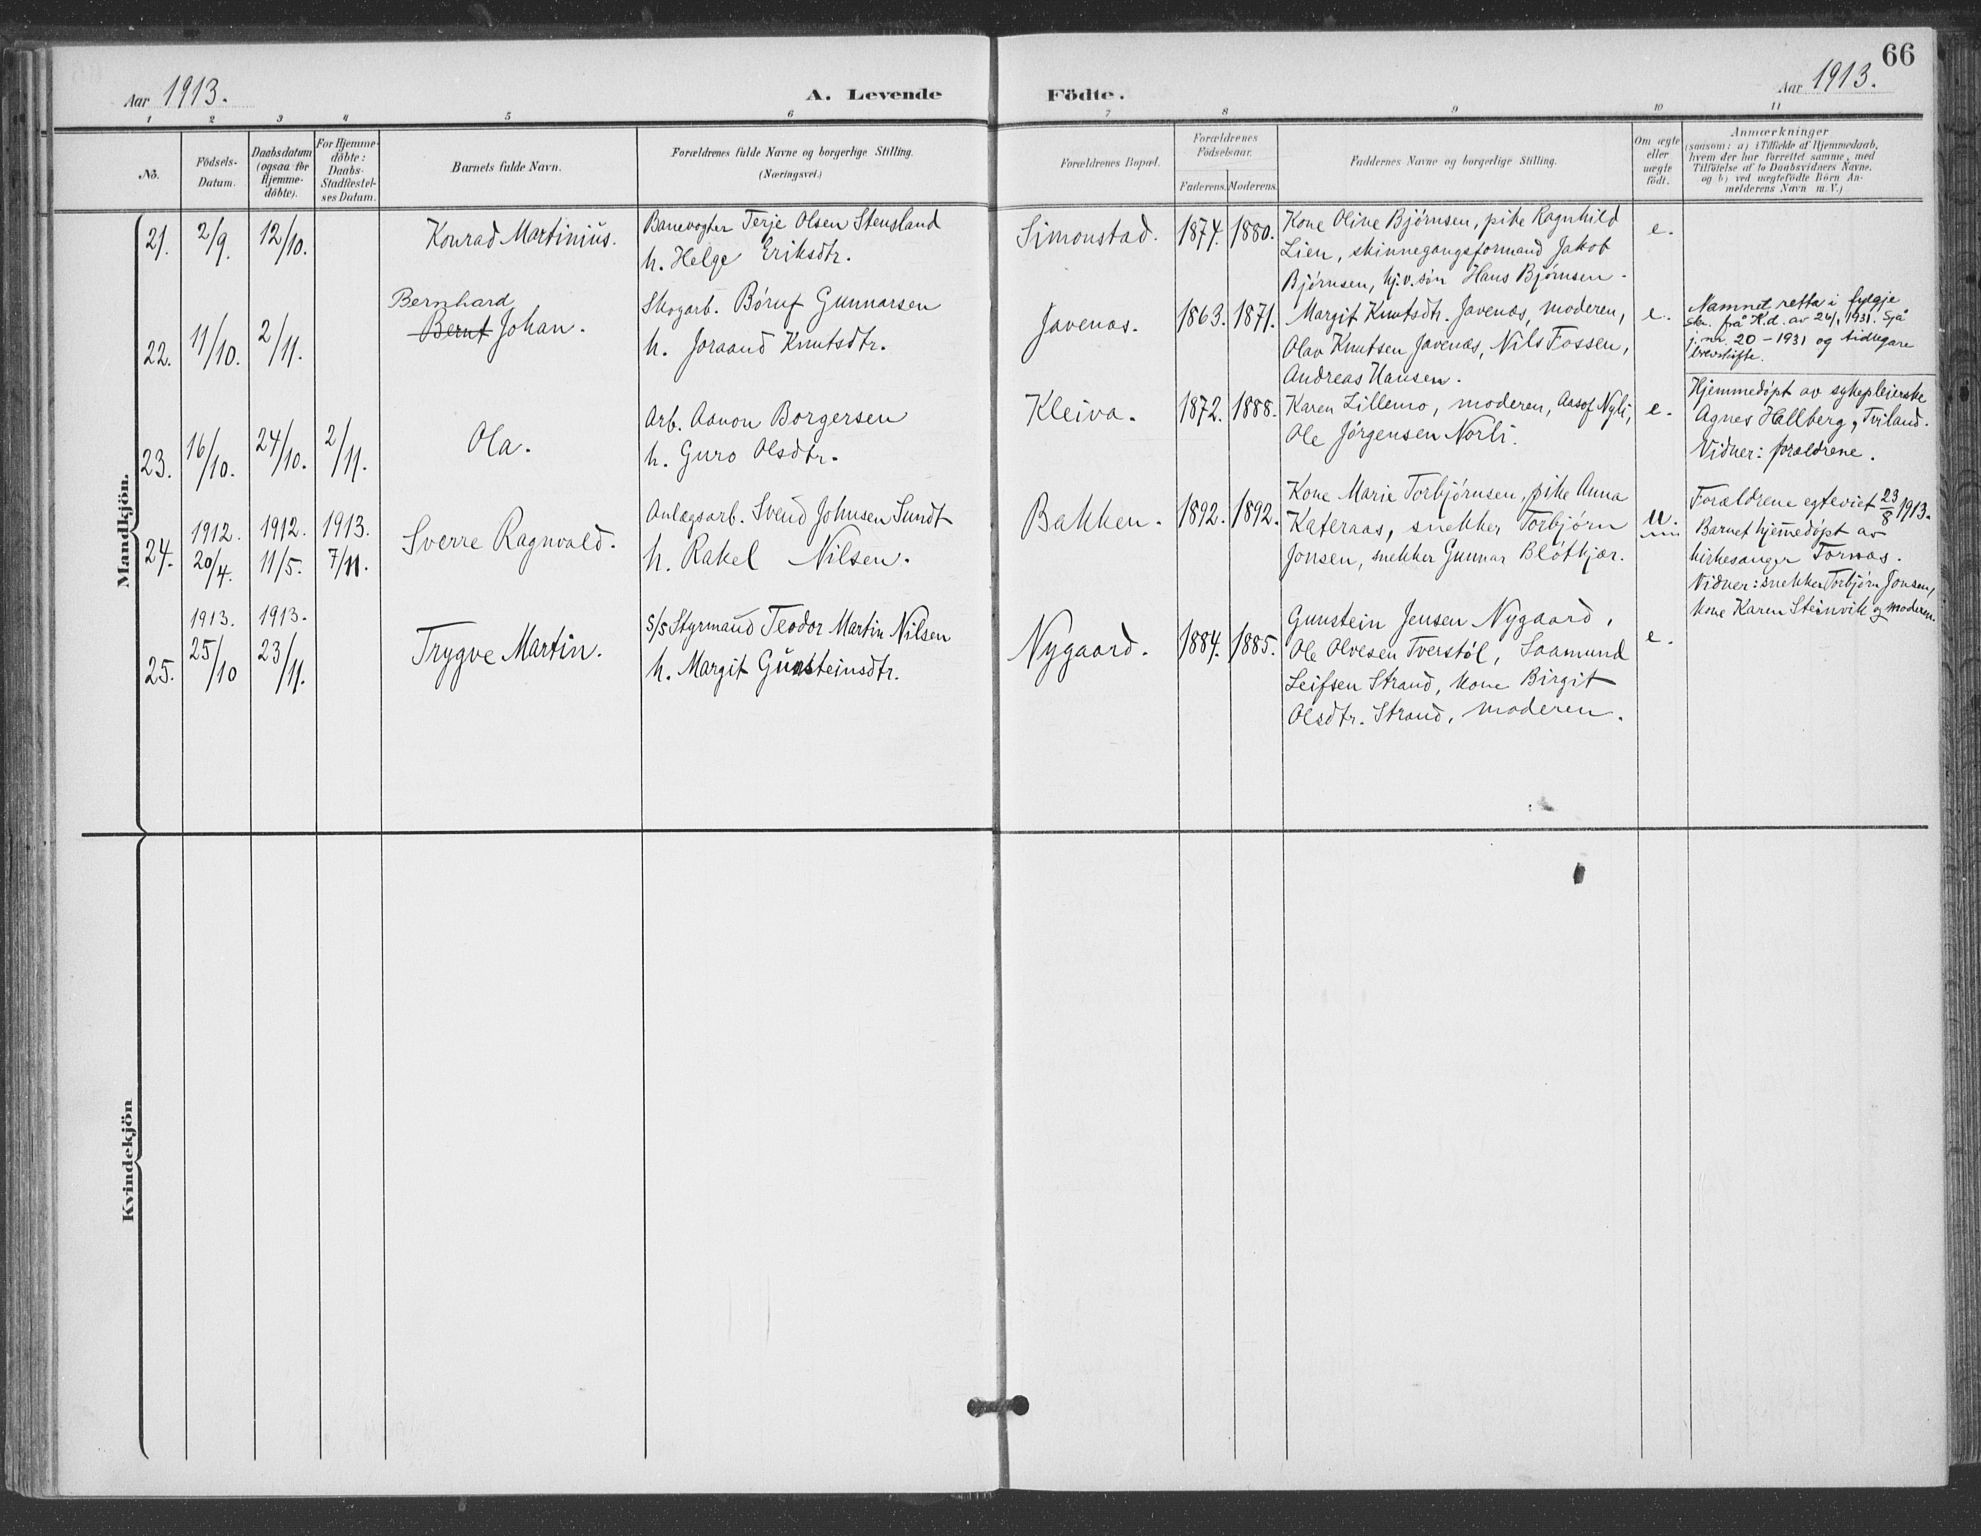 66
Aar 1913.
A. Levende Födte.
Aar 1913.
1 2 3 4 5 6 7 8 9 10 11
No.
Födsels-
Datum.
Daabsdatum
(ogsaa for
Hjemme-
döbte).
For Hjemme-
döbte:
Daabs-
Stadfæstel-
ses Datum.
Barnets fulde Navn.
Forældrenes fulde Navne og borgerlige Stilling.
(Næringsvei.)
Forældrenes Bopæl.
Forældrenes
Födselsaar.
Faderens. Moderens.
Faddernes Navne og borgerlige Stilling.
Om ægte
eller
uægte
födt.
Anmærkninger
(saasom: a) i Tilfælde af Hjemmedaab,
hvem der har forrettet samme, med
Tilföielse af to Daabsvidners Navne,
og b) ved uægtefödte Börn An-
melderens Navn m. V.)
Mandkjön.
21. 2/9. 12/10.
Konrad Martinius.
Banevogter Terje Olsen Stensland
h. Helge Eriksdtr.
Simonstad. 1874. 1880.
Kone Oline Bjørnsen, pike Ragnhild
Lien, skinnegangsformand Jakob
Bjørnsen, hj.v. søn Hans Bjørnsen.
e.
22. 11/10. 2/11.
Bernhard
Bernt Johan.
Skogarb. Børuf Gunnarsen
h. Joraand Knutsdtr.
Javenæs. 1863. 1871.
Margit Knutsdtr. Javenæs, moderen,
Olav Knutsen Javenæs, Nils Fossen,
Andreas Hansen.
e.
Namnet retta i fylgje
skr. frå K.d. av 1931. Sjå
j. nr. 20 - 1931 og tidlegare
brevskifte.
23. 16/10. 24/10. 2/11.
Ola.
Arb. Aanon Borgersen
h. Guro Olsdtr.
Kleiva. 1872. 1888.
Karen Lillemo, moderen, Aasof Nyli,
Ole Jörgensen Norli.
e.
Hjemmedøpt av sykepleierske
Agnes Hallberg, Tveiland.
Vidner: forældrene.
24. 1912. 20/4. 1912. 11/5. 1913. 7/11.
Sverre Ragnvald.
Anlægsarb. Svend Johnsen Sundt
h. Rakel Nilsen.
Bakken. 1892. 1892.
Kone Marie Torbjørnsen, pike Anna
Kateraas, snekker Torbjørn
Jonsen, snekker Gunnar Bløtkjær.
u.
Forældrene egteviet 23/8 1913.
Barnet hjemmedøpt av
kirkesanger Tornæs.
Vidner: snekker Torbjørn Jonsen,
kone Karen Steinvik og moderen.
25. 1913. 25/10 1913. 23/11.
Trygve Martin.
s/s Styrmand Teodor Martin Nilsen
h. Margit Gunsteinsdtr.
Nygaard. 1884. 1885.
Gunstein Jensen Nygaard,
Ole Olvesen Tverstøl, Saamund
Leifsen Strand, kone Birgit
Olsdtr. Strand, moderen.
e.
Kvindekjön